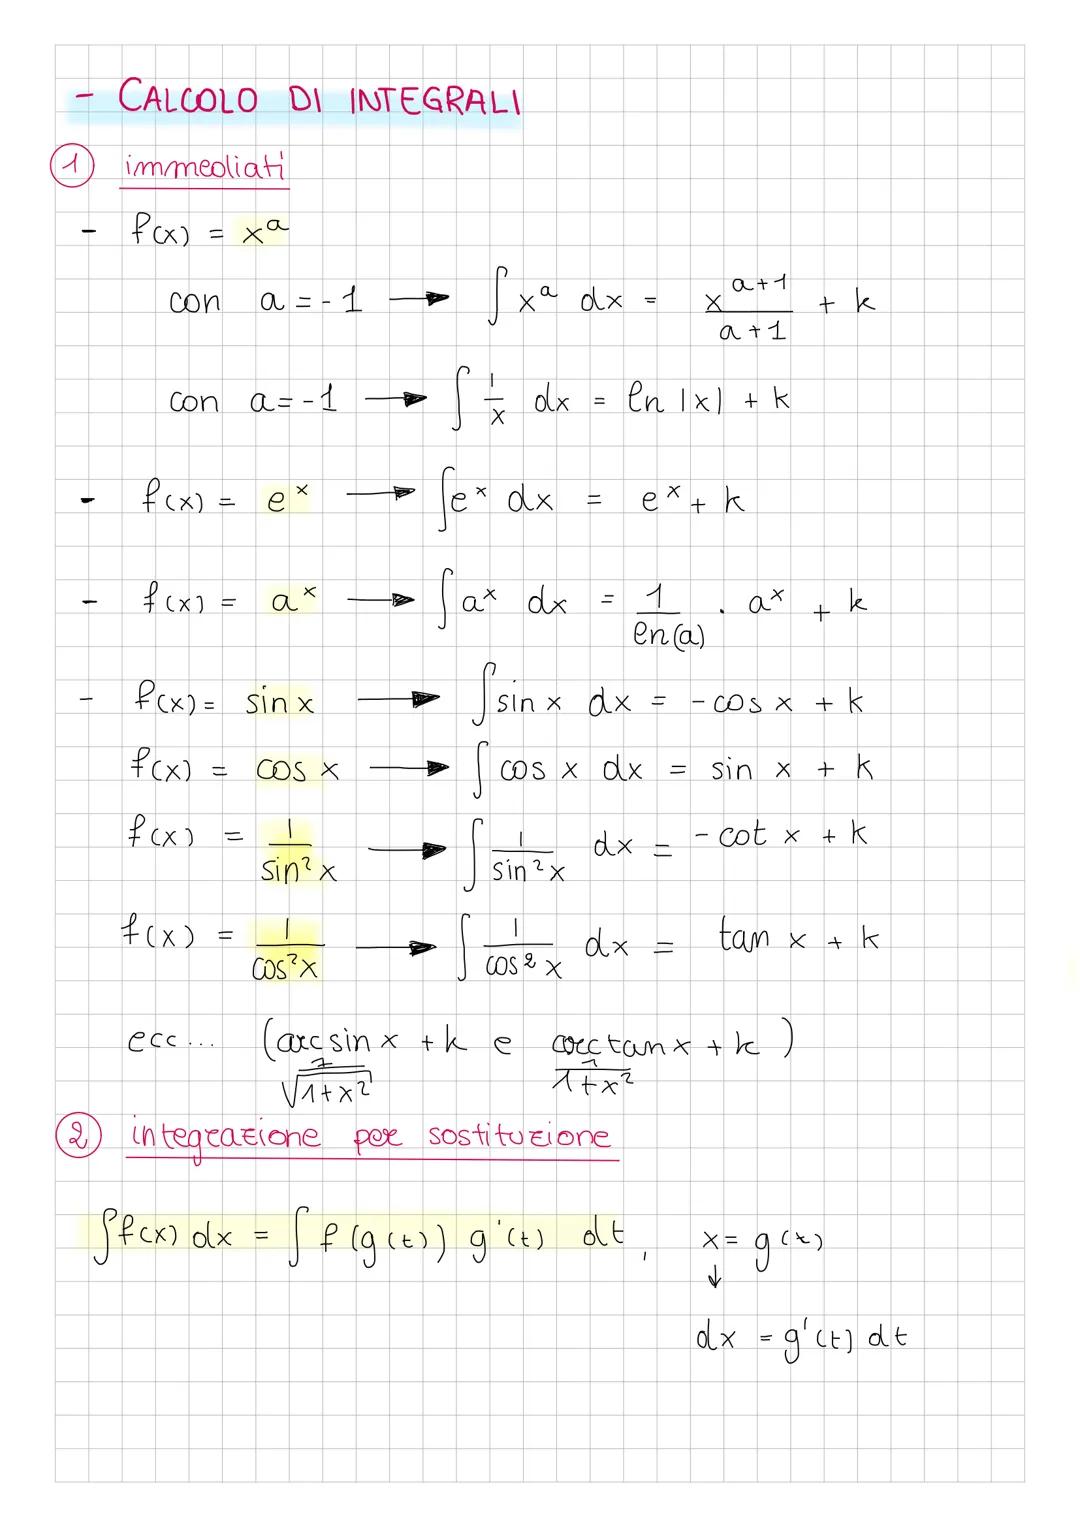 - CALCOLO DI INTEGRALI
1 immediati
- f(x) = xᵃ
con a = -1 → ∫ xᵃ dx = x^(a+1)/(a+1) + k
con a = -1 → ∫ 1/x dx = ln |x| + k
- f(x) = eˣ → ∫ eˣ dx = eˣ + k
- f(x) = aˣ → ∫ aˣ dx = 1/ln(a) · aˣ + k
- f(x) = sin x → ∫ sin x dx = - cos x + k
f(x) = cos x → ∫ cos x dx = sin x + k
f(x) = 1/sin² x → ∫ 1/sin² x dx = - cot x + k
f(x) = 1/cos² x → ∫ 1/cos² x dx = tan x + k
ecc... (arcsin x + k e arctan x + k)
1/√1+x² 1/1+x²
2 integrazione per sostituzione
∫ f(x) dx = ∫ f(g(t)) g'(t) dt, x = g(t)
↓
dx = g'(t) dt